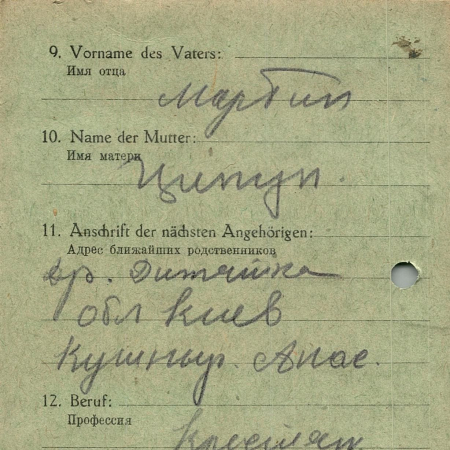 9. Vorname des Vaters:
Имя отца
Мартин
10. Name der Mutter:
Имя матери
Ципун.
11. Anschrift der nächsten Angehörigen:
Адрес ближайших родственников
др.
обл Киев
Кушнир. Апас.
12. Beruf:
Профессия
Крестьян